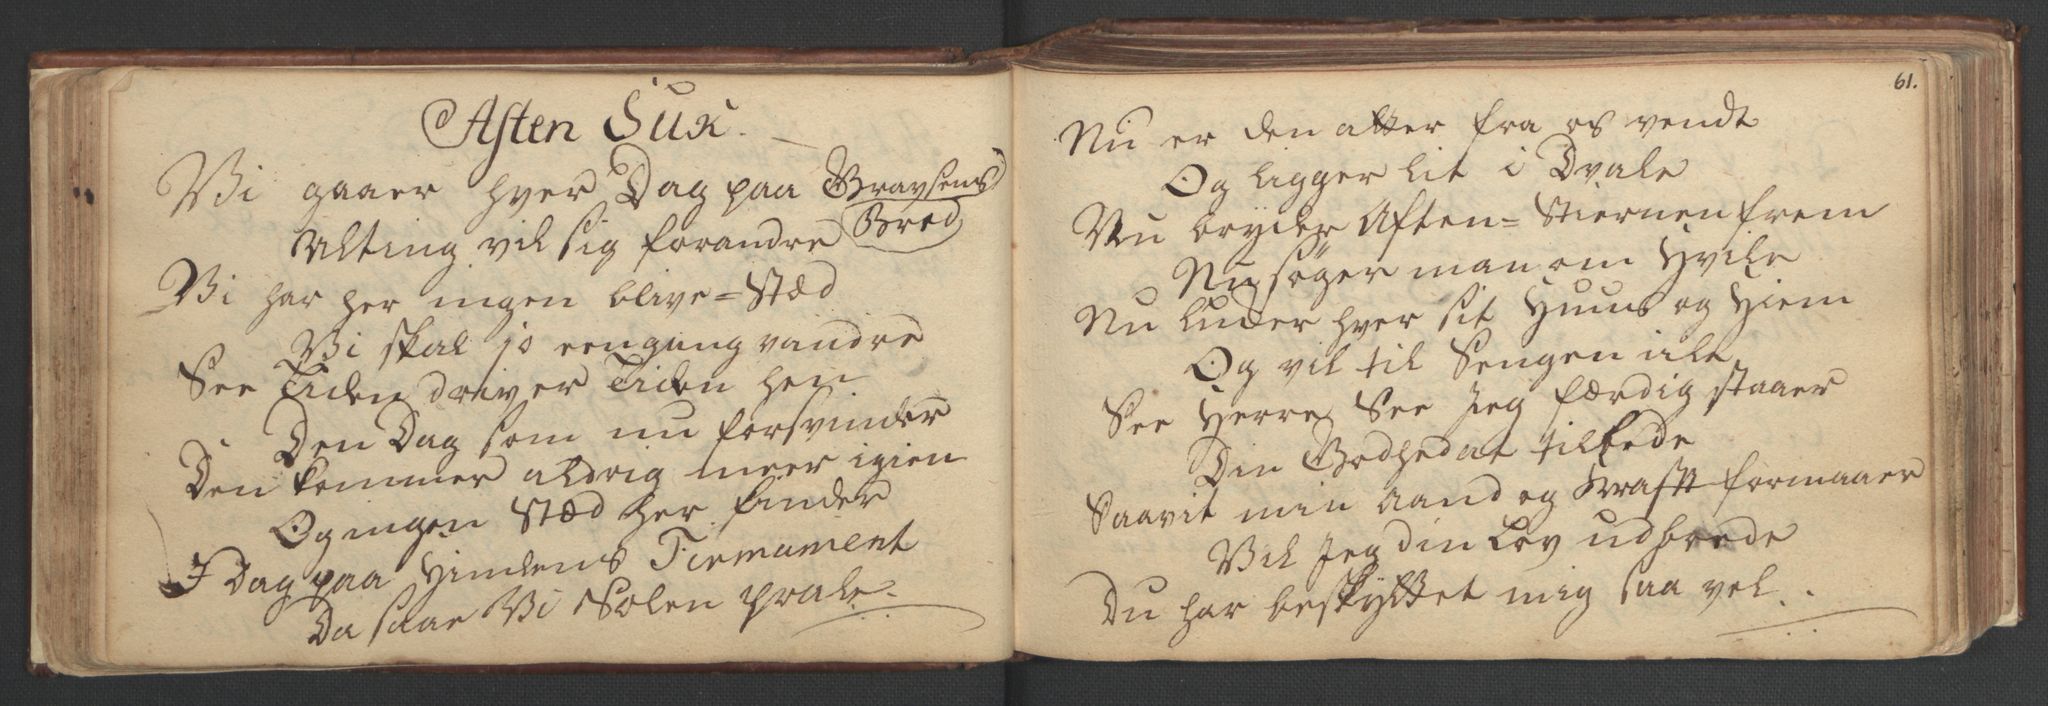 Aften Suk.
Vi gaaer hver Dag paa Gravsens
Bred
Alting vil sig forandre
Vi har her ingen blive=Stæd
Vi skal jo eengang vandre
See Tiden driver Tiden hen
Den Dag som nu forsvinder
Den kommer aldrig meer igien
Og ingen Stæd her finder
I Dag paa Himlens Firmament
Da saae Vi Solen prale.
61.
Nu er den atter fra os vendt
Og ligger lit i Dvale
Nu bryder Aften=Stiernen frem
Nu søger man om Hvile
Nu luder hver sit Huus og Hiem
Og vil til Sengen iile
See Herre See Jeg færdig staaer
Din Godhed at tilbede
Saavit min aand og Krafft formaaer
Vil Jeg din Lov udbrede
Du har beskyttet mig saa vel.